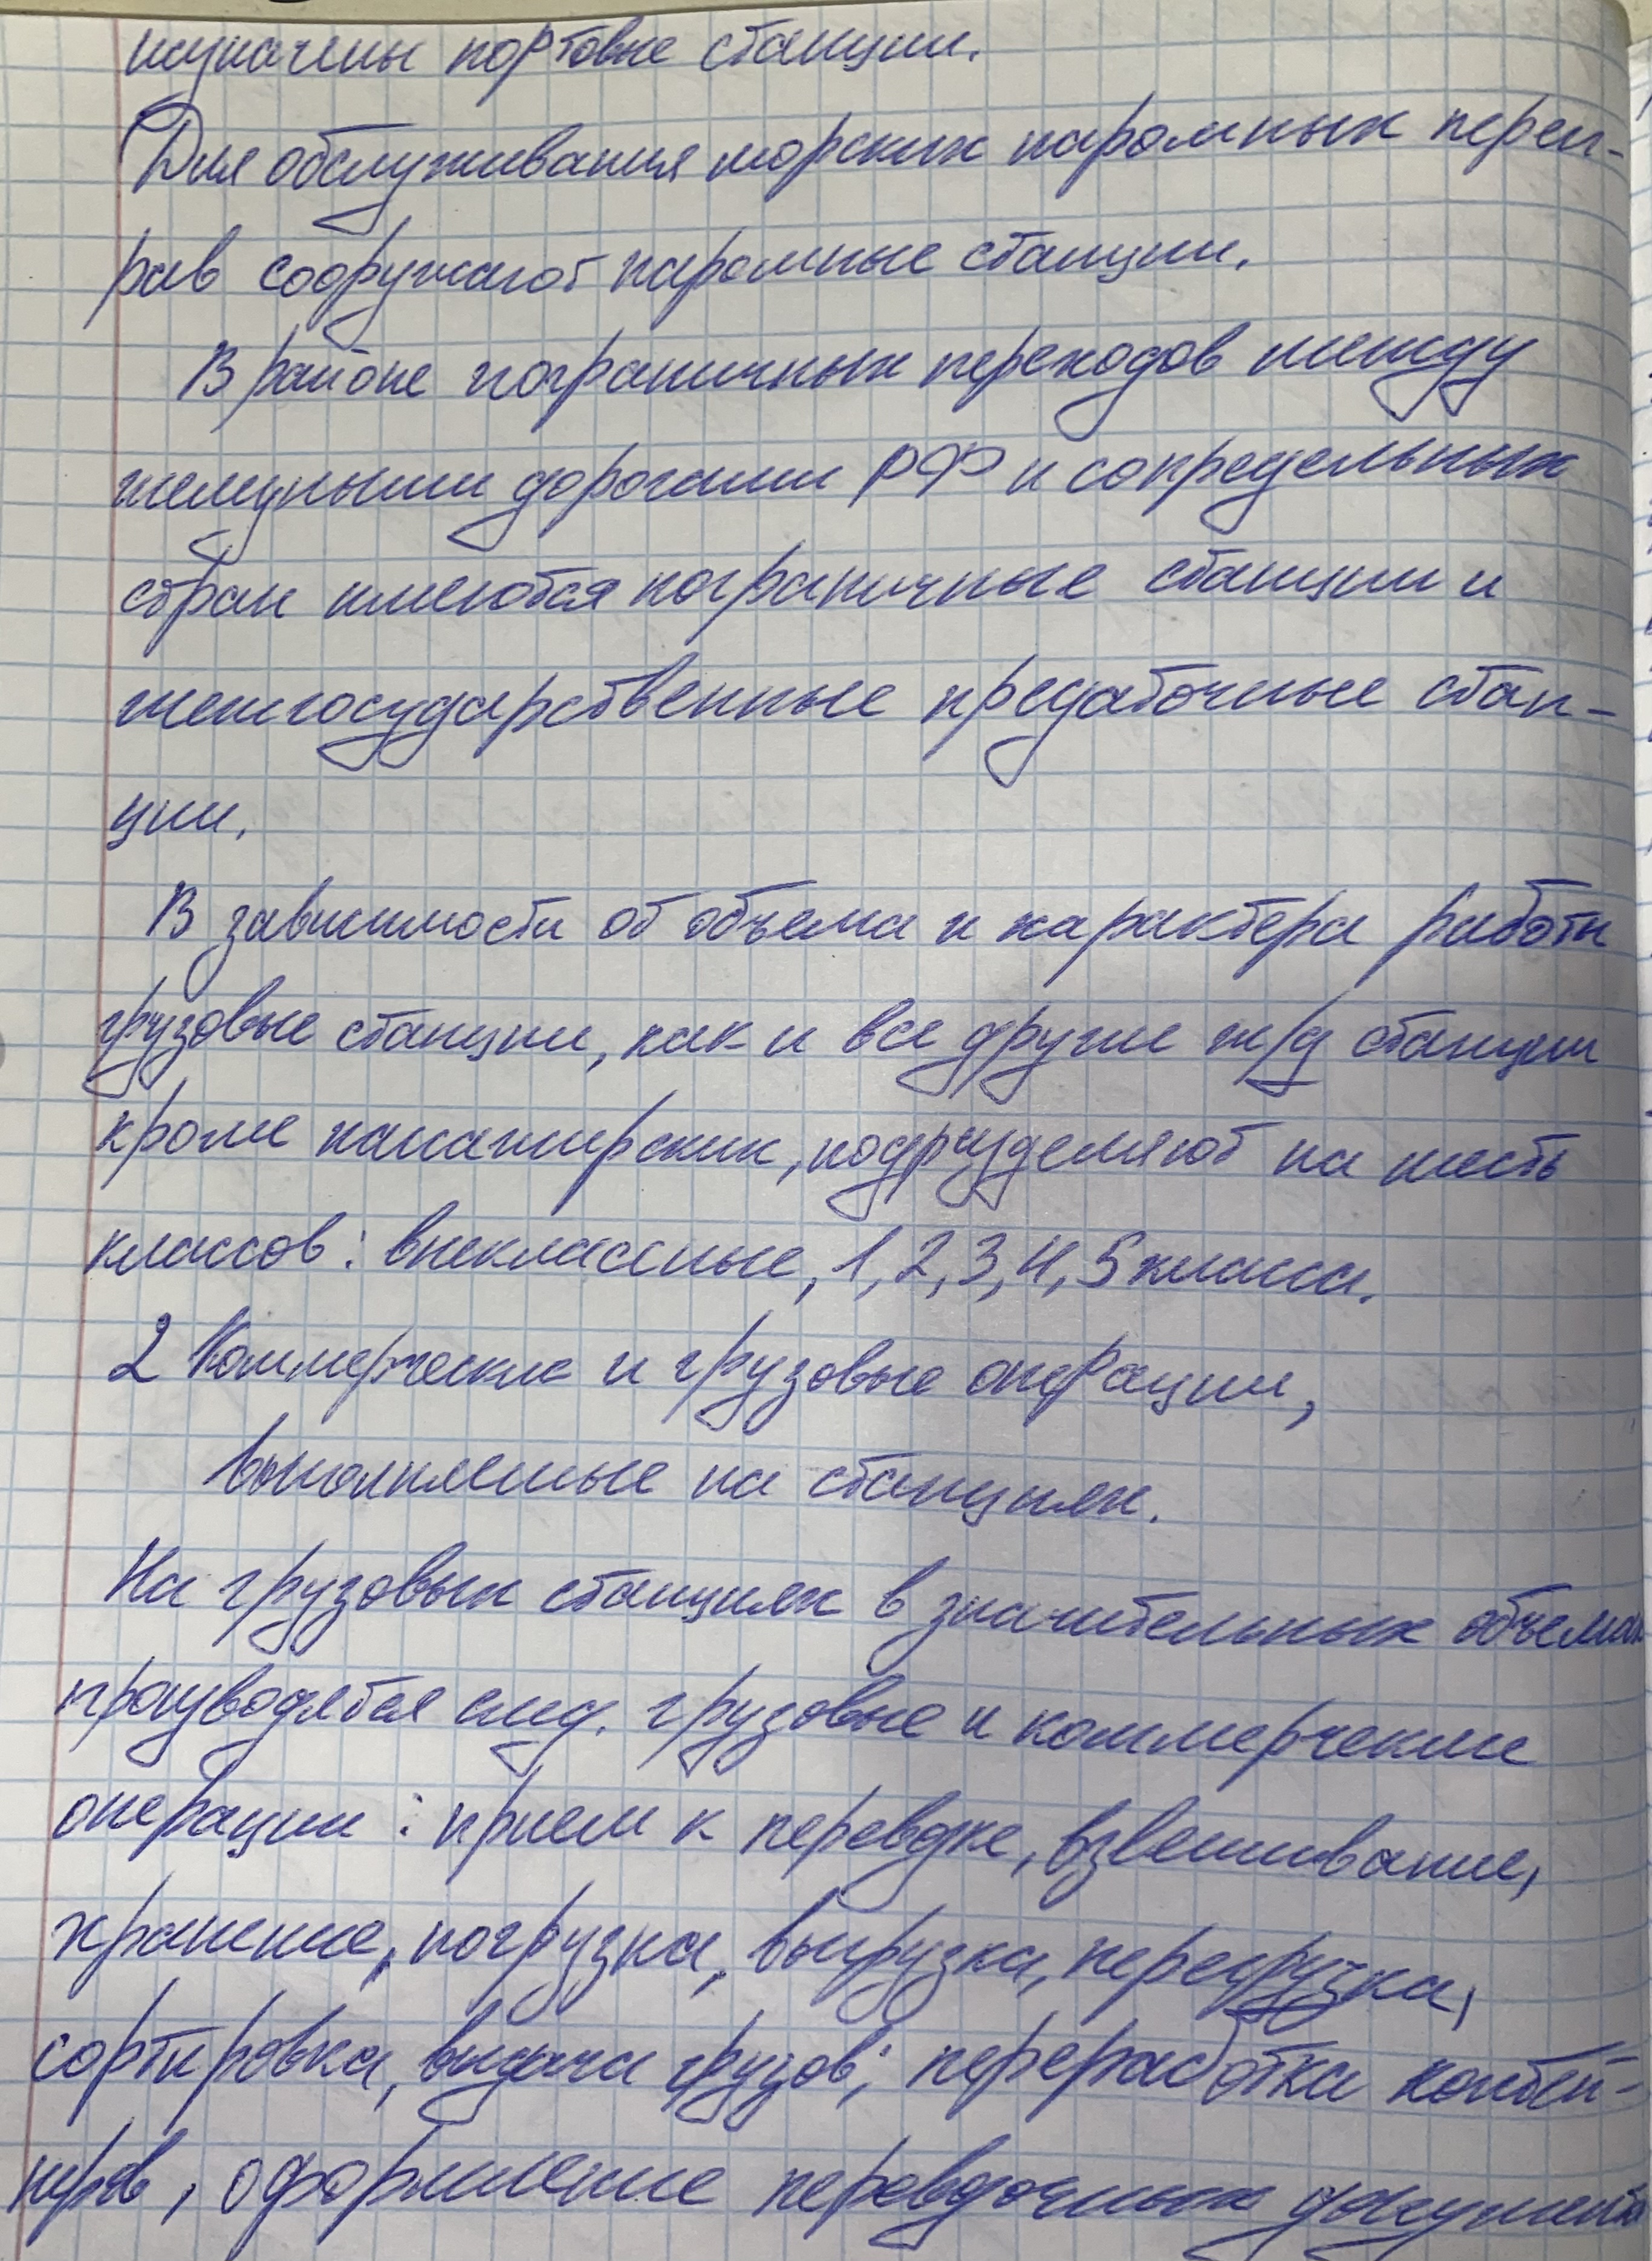 портовые станции.
Для обслуживания морских паромных переп-
рав сооружают паромные станции.
В районе пограничных переходов между
железными дорогами РФ и сопредельных
стран имеются пограничные станции и
межгосударственные предаточные стан-
ции.
В зависимости от объема и характера работы
грузовые станции, как и все другие ж/д станции
кроме пассажирских, подразделяют на шесть
классов: внеклассные, 1, 2, 3, 4, 5 класса.
2 Коммерческие и грузовые операции,
выполняемые на станциях.
На грузовых станциях в значительных объемах
производятся след. грузовые и коммерческие
операции: прием к перевозке, взвешивание,
хранение, погрузка, выгрузка, перегрузка,
сортировка, выдача грузов; переработка контей-
неров, оформление перевозочных документов